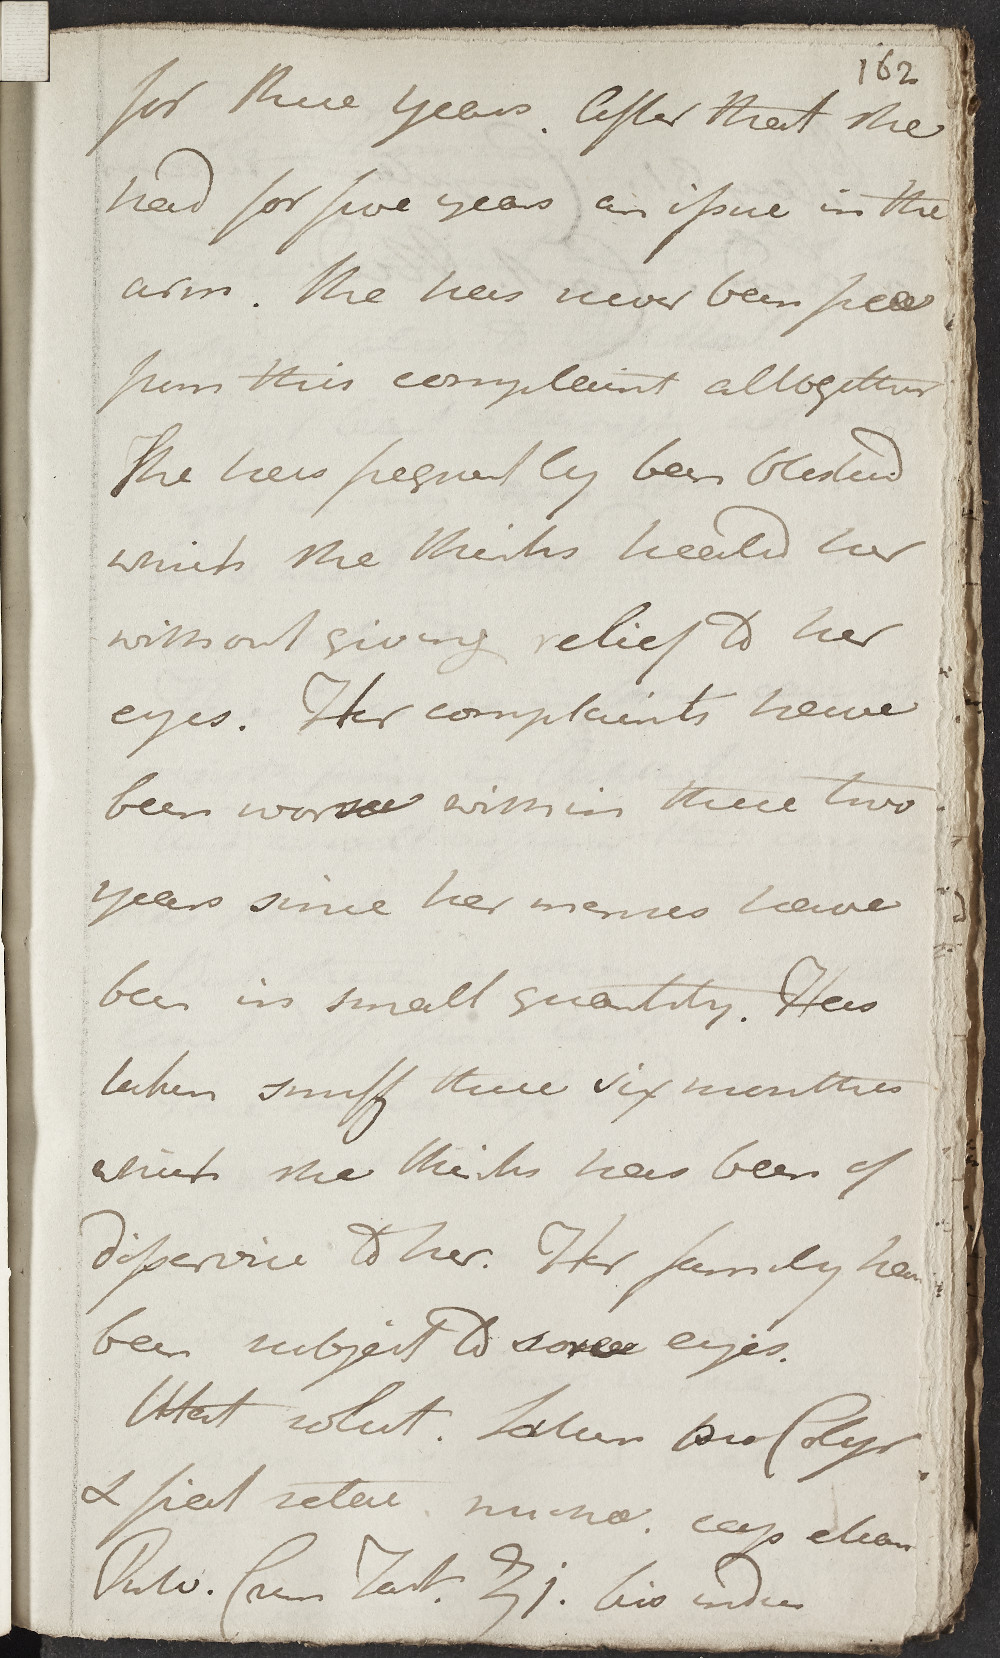 162
for three years. After that she
had for five years an issue in the
arm. She has never been free
from this complaint alltogether
She has frequently been blisterd
which she thinks heated her
without giving relief to her
eyes. Her complaints have
been worse within these two
years since her menses have
been in small quantity. Has
taken snuff these six months
which she thinks has been of
disservice to her. Her family have
been subject to sore eyes.
Utat. solut. Saturn pro Collyr.
& fiat setac. nucha. cap
Pulv. Crem Tart. ʒj. bis indies